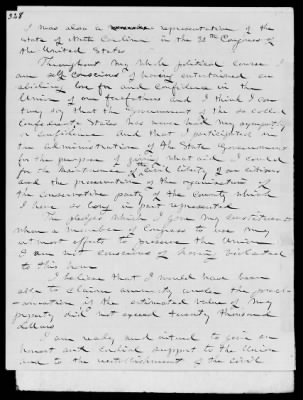 328
I was also a representative of the
State of North Carolina in the 36th Congress of
the United States
Throughout my whole political course I
am self conscious of having entertained an
abiding love for and confidence in the
Union of our forefathers and I think I can
truly say that the Government of the so called
Confederate States has never had my sympathy
or confidence And that I participated in
the administration of the State Government
for the purpose of giving what aid I could
for the maintenance of the civil liberty of our citizens
and the preservation of the organization of
the conservative party of the County which
I have so long in part represented
The pledges which I gave my constituents
when a member of Congress to use my
utmost efforts to preserve the Union
I am not conscious of having violated
to this hour
I believe that I would have been
able to claim amnesty under the procl-
amation, if the estimated value of my
property did not exceed twenty thousand
dollars
I am ready and willing to give an
honest and cordial support to the Union
and to the reestablishment of the civil